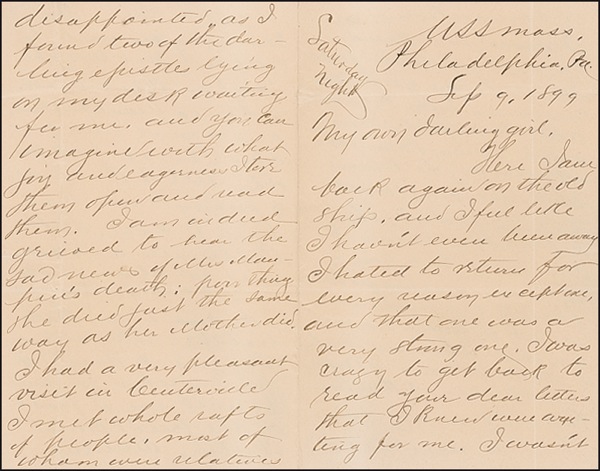 USS Mass.
Philadelphia, Pa.
Saturday
Night
Sep 9, 1899
My own darling girl,
Here I am
back again on the old
ship, and I feel like
I haven't even been away
I hated to return for
every reason except one,
and that one was a
very strong one. I was
crazy to get back to
read your dear letters
that I knew were awai-
ting for me. I wasn't
disappointed, as I
found two of the dar-
ling epistles lying
on my desk waiting
for me. and you can
imagine with what
joy and eagerness I tore
them open and read
them. I am indeed
grieved to hear the
sad news of Mrs
pin's death; poor thing
she died just the same
way as her Mother did.
I had a very pleasant
visit in Centerville
I met whole rafts
of people, most of
whom were relatives